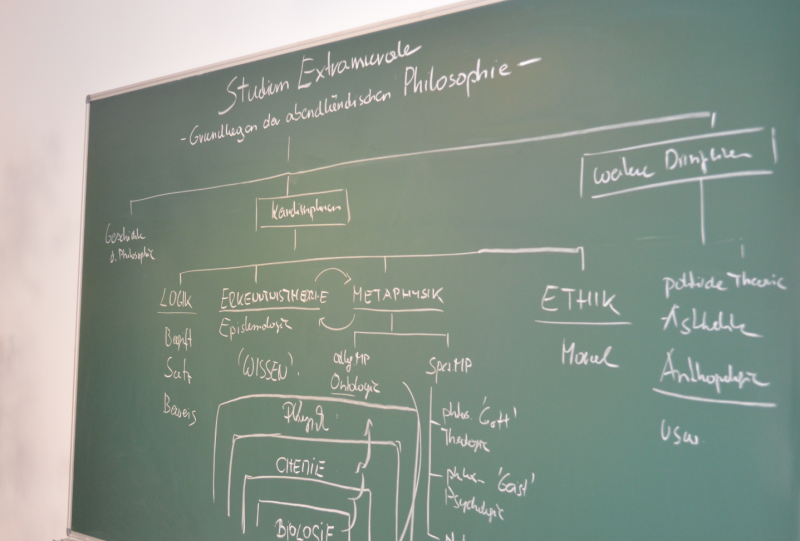 Studium Extramurale
- Grundlegen der abendländischen Philosophie -
Kerndisziplinen
weitere Disziplinen
Geschichte
d. Philosophie
LOGIK
Begriff
Satz
Beweis
ERKENNTNISTHEORIE
Epistemologie
'WISSEN'
METAPHYSIK
allg MP
Ontologie
Spez MP
phil. 'Gott'
Theologie
phil. 'Geist'
Psychologie
ETHIK
Moral
politische Theorie
Ästhetik
Anthropologie
usw.
Physik
CHEMIE
BIOLOGIE